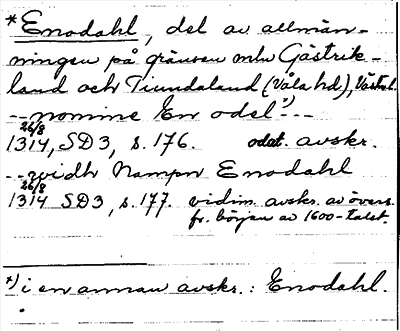 *Enodahl, del av allmän-
ningen på gränsen mln Gästrik-
land och Tiundaland (Våla hd), Västml.
--nomine En odel*)--
26/8
1314, SD3, s. 176. odat. avskr.
--vidh Nampn Enodahl
26/8
1314 SD3, s. 177. vidim. avskr. av övers.
fr. början av 1600-talet.
*) i en annan avskr.: Enodahl.